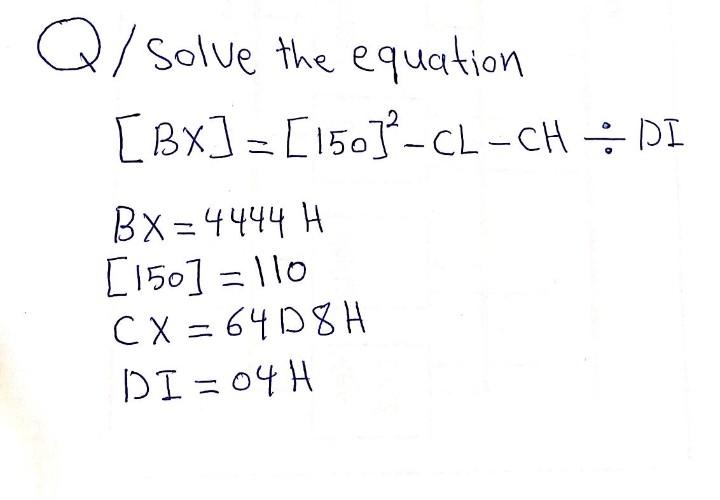 Q/ Solve the equation
[BX] = [150]² - CL - CH ÷ DI
BX = 4444 H
[150] = 110
CX = 64D8H
DI = 04H